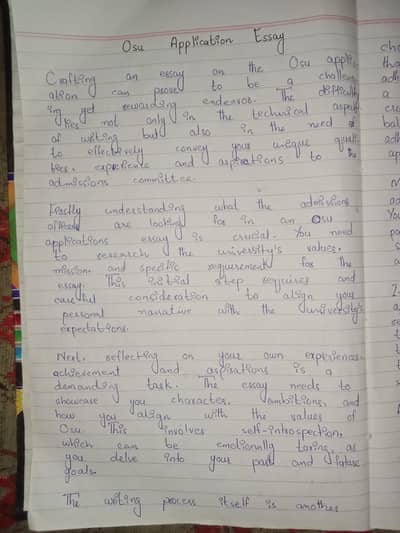 Osu Application Essay
Crafting an essay on the Osu applic
ation can prove to be a challen
ing yet rewarding endeavor. The difficulty
lies not only in the technical aspect
of writing but also in the need
to effectively convey your unique quali
ties, experience and aspirations to the
admissions committee.
Firstly understanding what the admissions
are looking for in an Osu
applications essay is crucial. You need
to research the university's values,
mission, and specific requirement for the
essay. This initial step requires and
careful consideration to align you
personal narrative with the university's
expectations.
Next, reflecting on your own experiences
achievement and aspirations is a
demanding task. The essay needs to
showcase you character, ambitions, and
how you align with the values of
Osu. This involves self-introspection,
which can be emotionally taxing, as
you delve into your past and future
goals.
The writing process itself is another